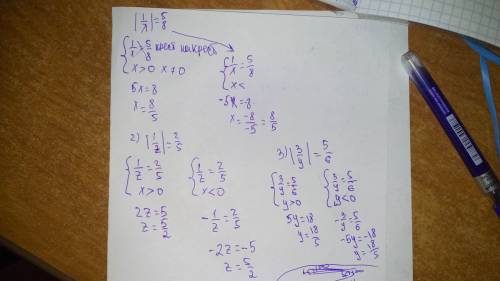 |1/x| = 5/8
{ 1/x = 5/8 крест накрест
x > 0 x ≠ 0
5x = 8
x = 8/5
{ 1/x = 5/8
x <
-5x = -8
x = -8/-5 = 8/5
2) |1/z| = 2/5
{ 1/z = 2/5
x > 0
2z = 5
z = 5/2
{ 1/z = 2/5
x < 0
-1/z = 2/5
-2z = -5
z = 5/2
3) |3/y| = 5/6
{ 3/y = 5/6
y > 0
5y = 18
y = 18/5
{ 3/y = 5/6
y < 0
-3/y = 5/6
-5y = -18
y = 18/5